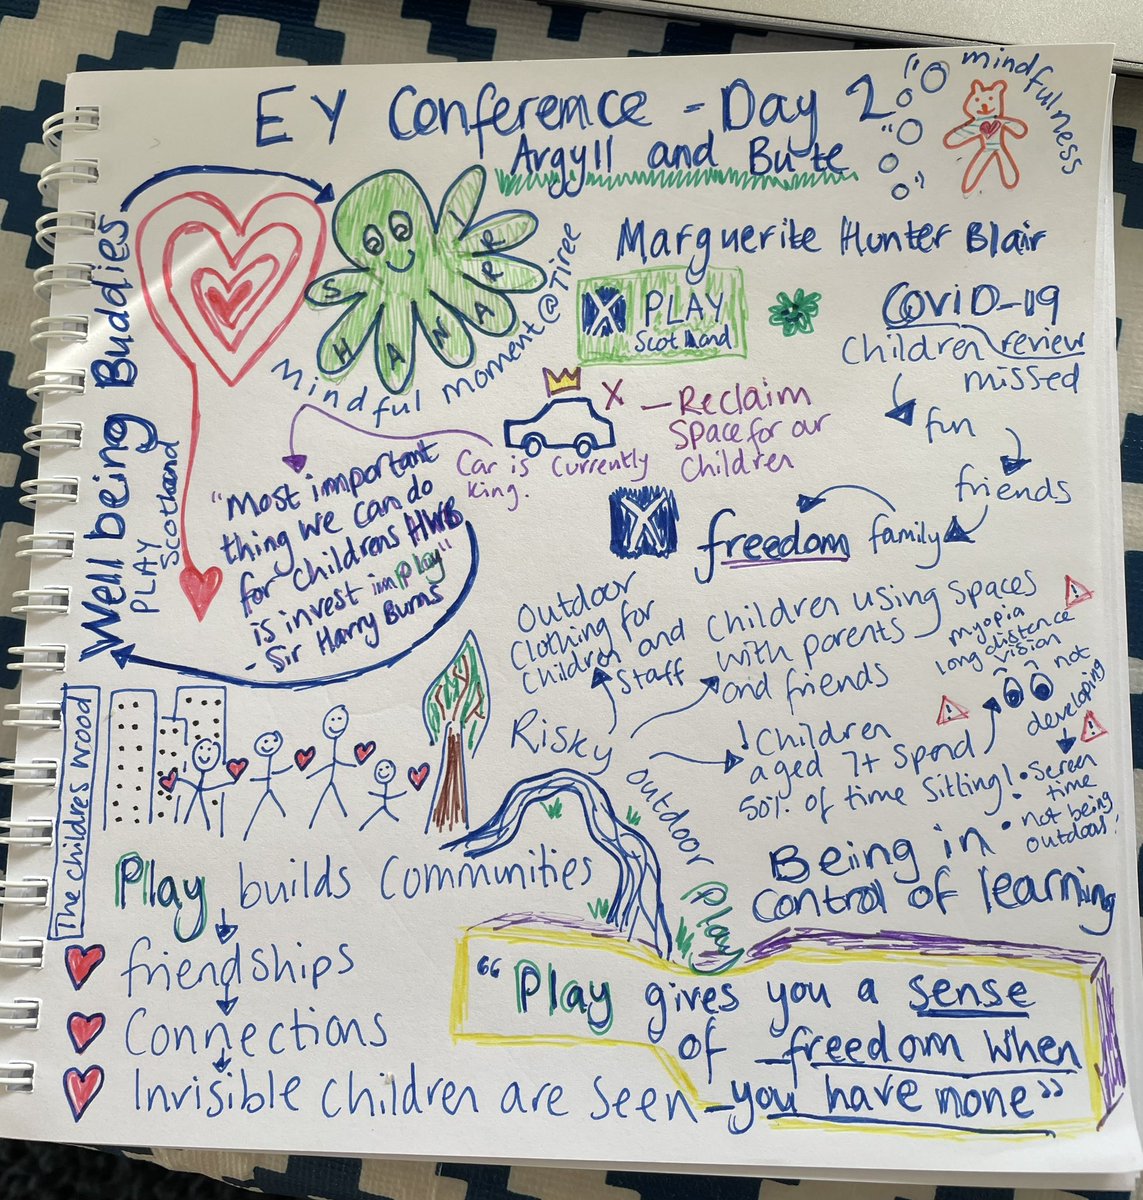 EY Conference - Day 2
Argyll and Bute
mindfulness
Well being Buddies
PLAY
Scotland
SHANARRI
Mindful moment @ Tiree
Marguerite Hunter Blair
PLAY
Scotland
COVID-19
Children review
missed
fun
friends
family
freedom
X - Reclaim
Space for our
Children
Car is currently
king.
"Most important
thing we can do
for childrens HWB
is invest in play"
- Sir Harry Burns
Outdoor
clothing for
Children and
Staff
Children using spaces
with parents
and friends
Risky outdoor play
! Children
aged 7+ Spend
50% of time Sitting!
myopia
long distence
vision
not
developing
• Screen
time
• not being
outdoors!
Being in
control of learning
The childres wood
Play builds Communities
friendships
Connections
Invisible children are seen
"Play gives you a sense
of freedom when
you have none"